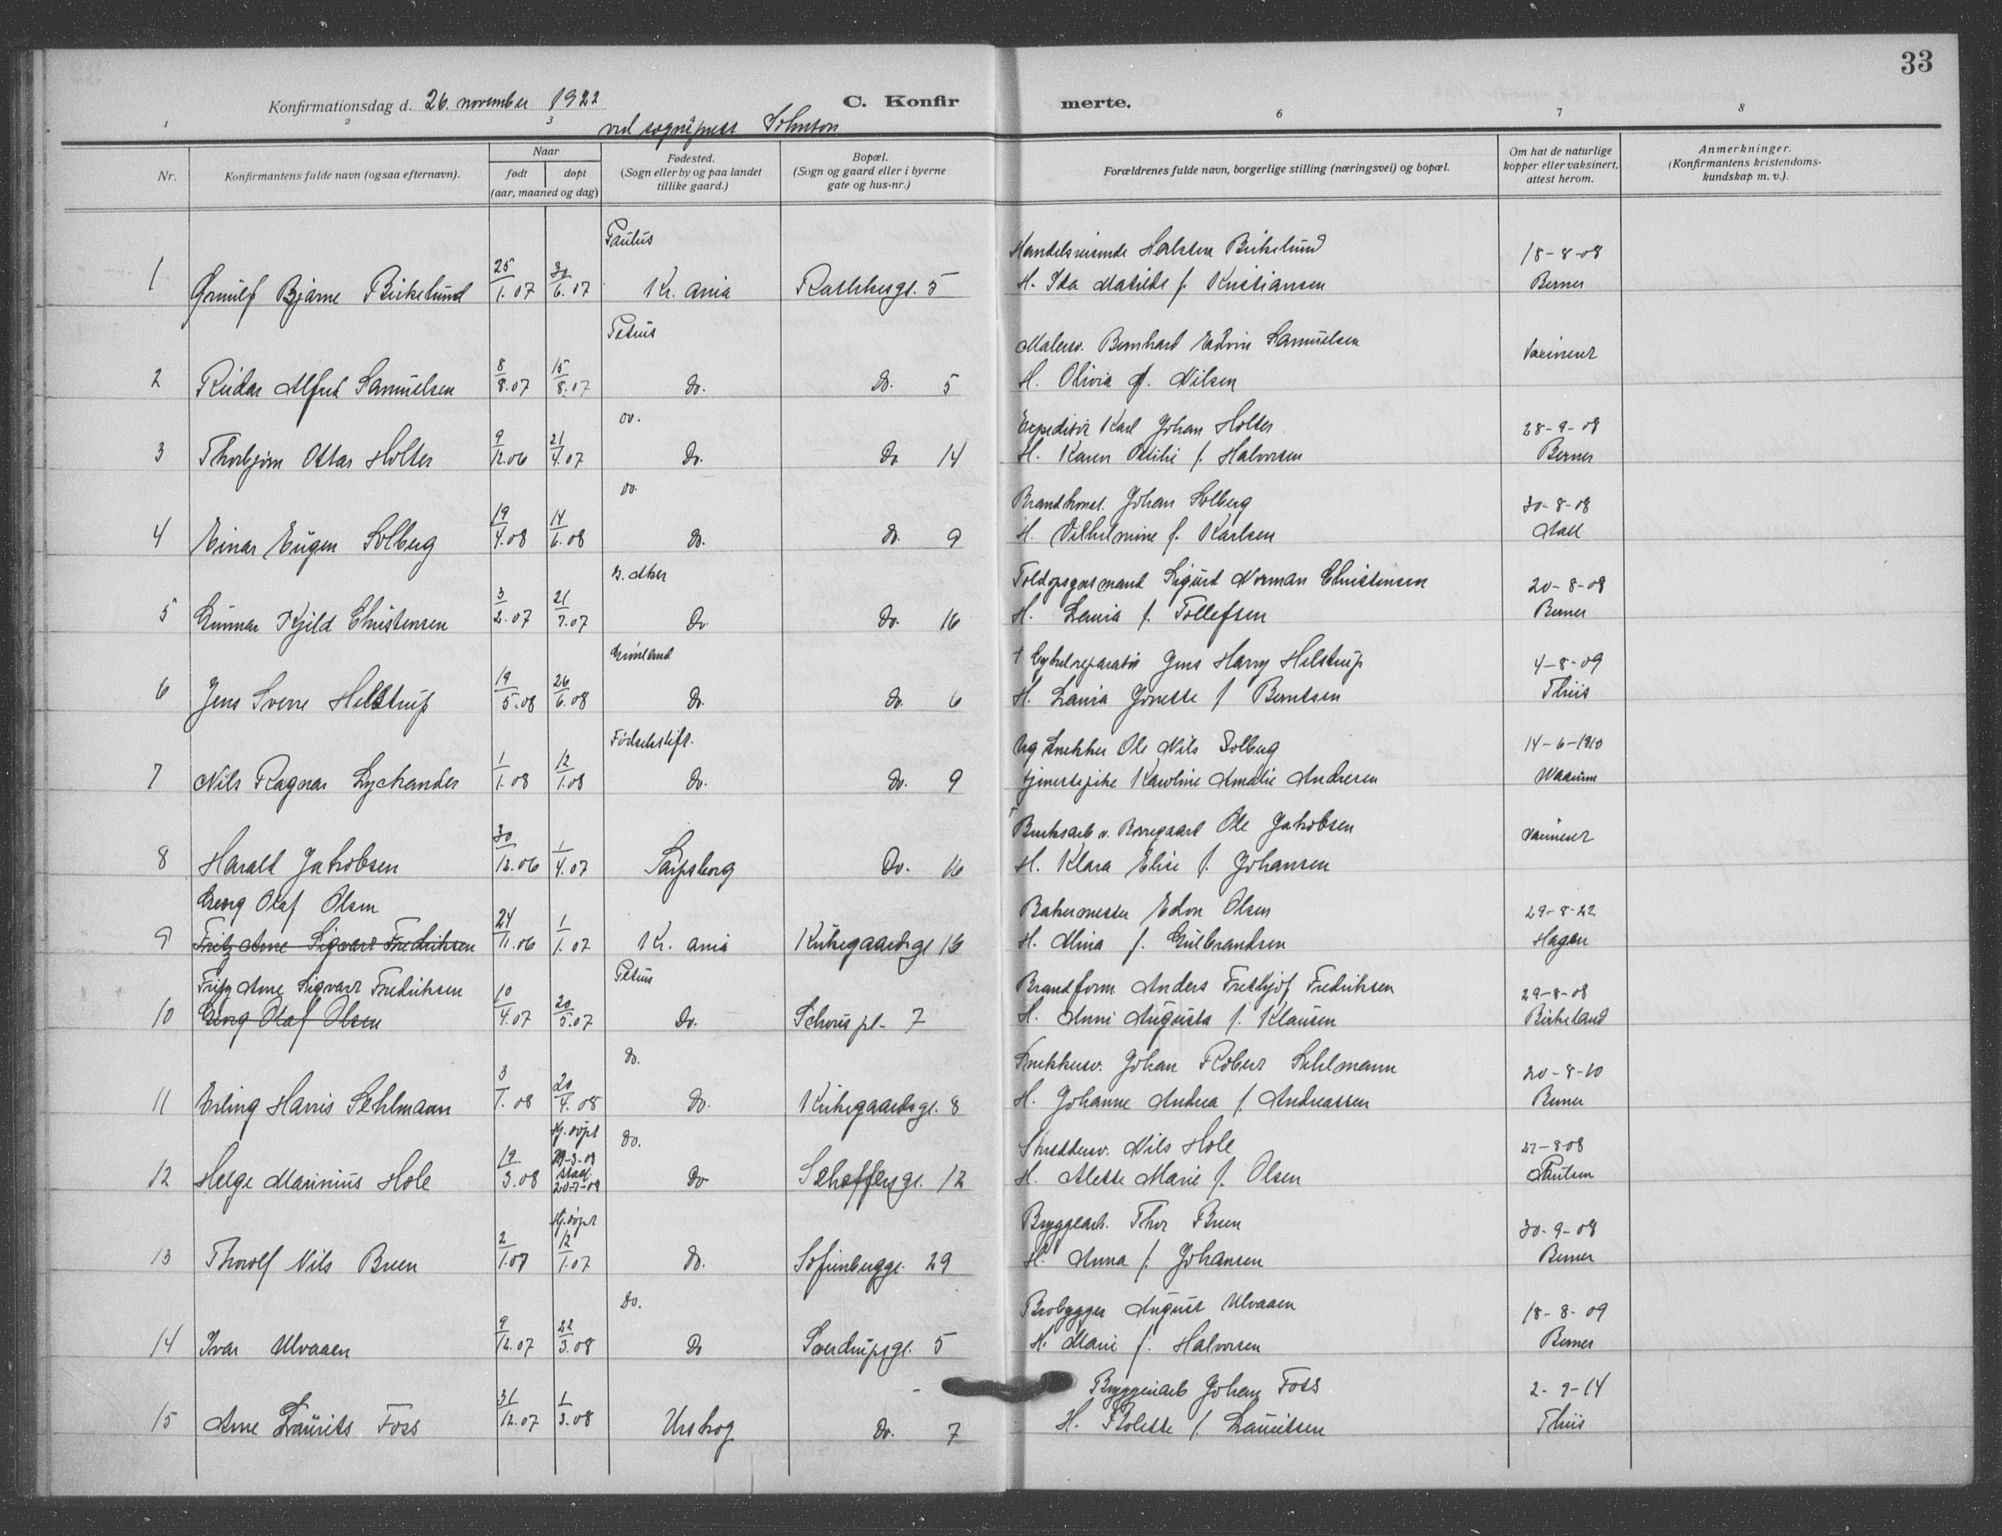 33
Konfirmationsdag d. 26. november 1922 C. Konfir merte.
ved sogneprest
1 2 3 6 7 8
Nr. Konfirmantens fulde navn (ogsaa efternavn). Naar født døpt (aar, maaned og dag) Fødested. (Sogn eller by og paa landet tillike gaard.) Bopæl. (Sogn og gaard eller i byerne gate og hus-nr.) Forældrenes fulde navn, borgerlige stilling (næringsvei) og bopæl. Om hat de naturlige kopper eller vaksinert, attest herom. Anmerkninger. (Konfirmantens kristendoms- kundskap m. v.).
Paulus Halsten Birkelund 18-8-08
1 Ørnulf Bjarne Birkelund 25/1.07 30/6.07 Kr.ania 5 H. Ida Matilde f. Kristiansen Berner
Petrus Malersv. Bernhard Edvin Samuelsen Vaccinert
2 Reidar Alfred Samuelsen 8/8.07 15/8.07 Do. Do. 5 H. Olivia f. Nilsen
Do. Expeditør Karl Johan Holter 28-9-08
3 Thorbjørn Ottar Holter 9/12.06 21/4.07 Do. Do 14 H. Karen Otilie f. Halvorsen Berner
Do. Brandkonst. Johan Solberg 30-8-08
4 Einar Eugen Solberg 19/4.08 14/6.08 Do. Do. 9 H. Vilhelmine f. Karlsen Aall
Aker Sigurd Norman Christensen 20-8-08
5 Gunnar Kjeld Christensen 3/2.07 21/7.07 Do Do. 16 H. Laura f. Tollefsen Berner
Grønland † Cykelreparatør Jens Harry Helstrup 4-8-09
6 Jens Sverre Helstrup 19/5.08 26/6.08 Do. Do. 6 H. Laura Jonette f Berntsen Thiis
Fødselsstift. Ug Snekker Ole Nils Solberg 14-6-1910
7 Nils Ragnar Lychander 1/1.08 12/1.08 Do. Do. 9 tjenestepike Karoline Amalie Andresen Waarum
† Bruksarb v. Borregaard Ole Jakobsen Vaccinert
8 Harald Jakobsen 30/12.06 1/4.07 Sarpsborg Do. 16 H. Klara Elise f. Johansen
Georg Olaf Olsen Bakermester Edvn Olsen 29-8-22
9 Fritz Arne Sigvart Fredriksen 24/11.06 1/1.07 Kr.ania Kirkegaardsgt 16 H. Mina f. Gulbrandsen Hagen
Fritz Arne Sigvart Fredriksen Petrus Brandform Anders Fredthjof Fredriksen 29-8-08
10 Georg Olaf Olsen 10/4.07 20/5.07 Do. Schous pl. 7 H. Anni Augusta f. Klausen Birkeland
Do. Snekkersv. Johan Robert Sehlmann 20-8-10
11 Erling Harris Sehlmann 3/1.08 20/4.08 Do. Kirkegaardsgt. 8 H. Johanne Andrea f. Andreassen Berner
Hj.døpt Do. Skreddersv. Nils Hole 27-8-08
12 Helge Marinius Hole 19/3.08 Do Schøffersgt. 12 H. Alette Marie f. Olsen Paulsen
Hj.døpt Bryggearb. Thor Breen 30-9-08
13 Thorolf Nils Breen 2/1.07 12/1.07 Do. Sofienberggt. 29 H. Anna f. Johansen Berner
Do. Brobygger August Ulvaaen 18-8-09
14 Ivar Ulvaaen 9/12.07 22/3.08 Do Sverdrupsgt. 5 H. Marie f. Halvorsen Berner
Bryggeriarb Johan Foss 2-9-14
15 Arne Laurits Foss 31/12.07 1/3.08 Urskog Do. 7 H. f. Lauritsen Thiis